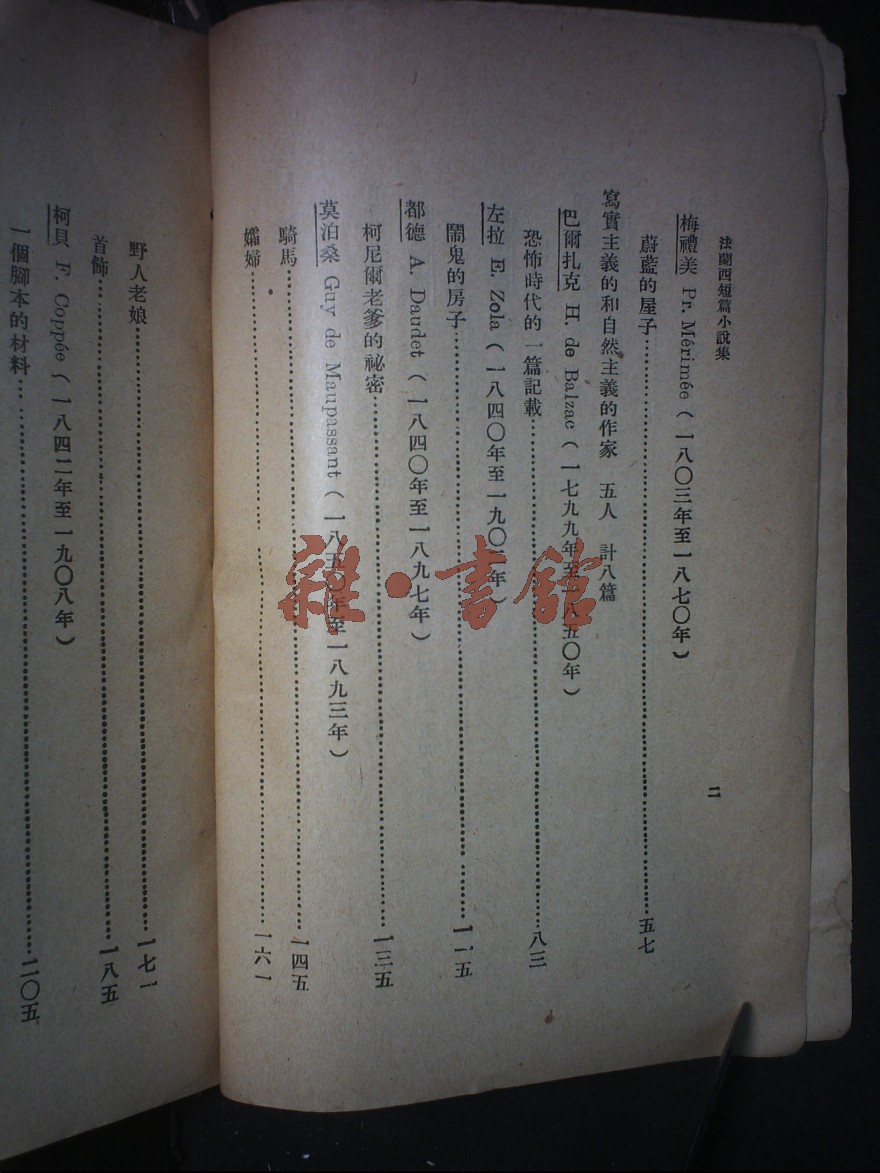 法蘭西短篇小說集
二
梅禮美 Pr. Mérimée（一八〇三年至一八七〇年）
蔚藍的屋子……五七
寫實主義的和自然主義的作家　五人　計八篇
巴爾扎克 H. de Balzac（一七九九年至一八五〇年）
恐怖時代的一篇記載……八三
左拉 E. Zola（一八四〇年至一九〇二年）
鬧鬼的房子……一一五
都德 A. Daudet（一八四〇年至一八九七年）
柯尼爾老爹的祕密……一三五
莫泊桑 Guy de Maupassant（一八五〇年至一八九三年）
騎馬……一四五
孀婦……一六一
野人老娘……一七一
首飾……一八五
柯貝 F. Coppée（一八四二年至一九〇八年）
一個腳本的材料……二〇五
雜·書館